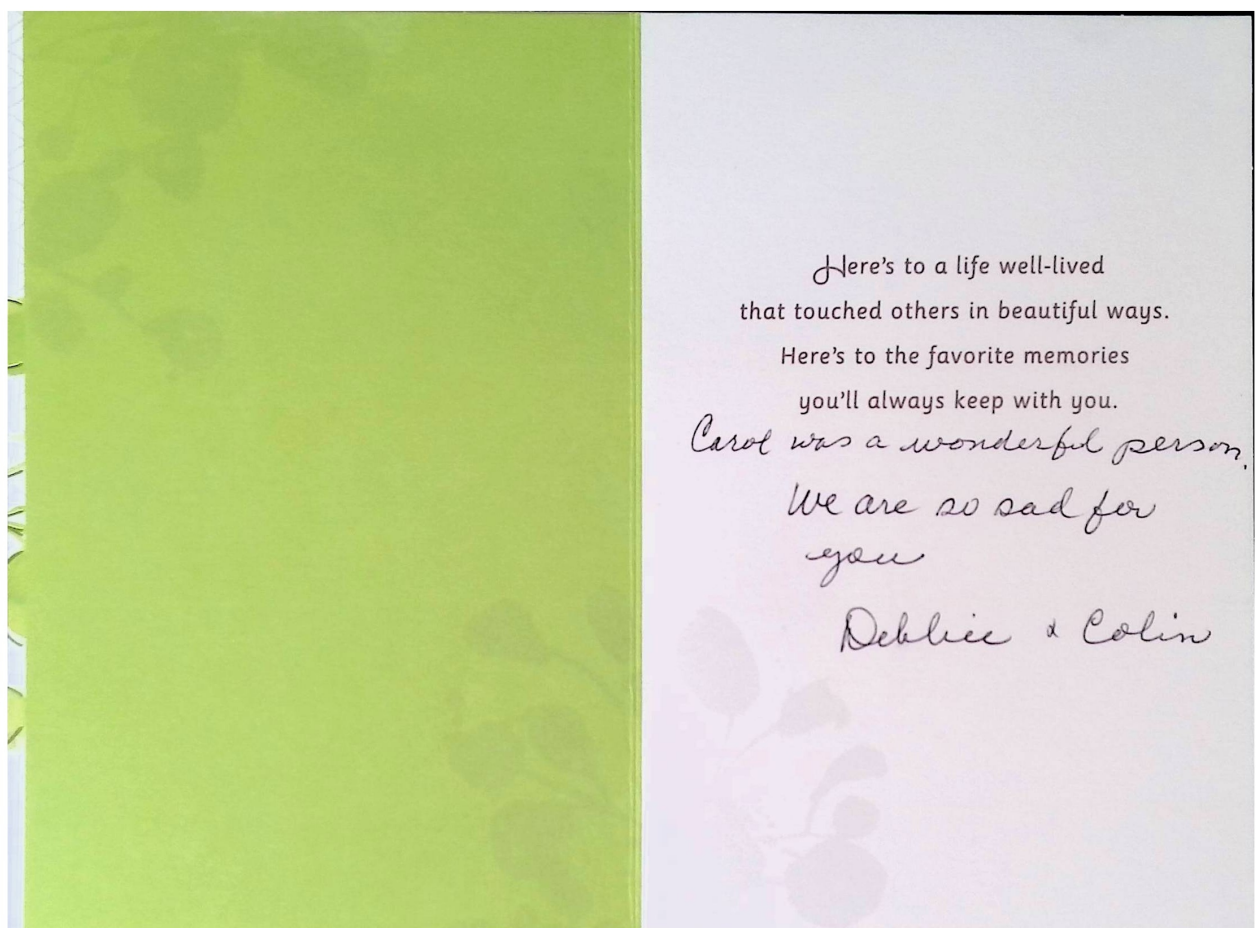 Here's to a life well-lived
that touched others in beautiful ways.
Here's to the favorite memories
you'll always keep with you.
Carol was a wonderful person.
We are so sad for
you
Debbie & Colin